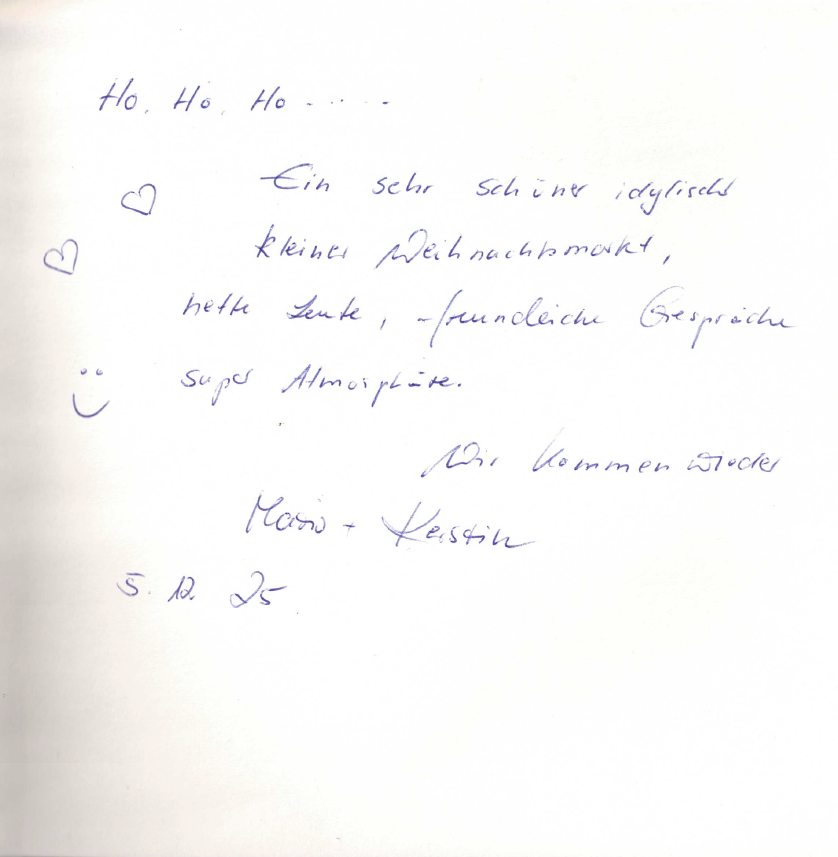 Ho, Ho, Ho - . . . . -
Ein sehr schöner idylischer
kleiner Weihnachtsmarkt,
nette Leute, freundliche Gespräche
super Atmosphäre.
Wir kommen wieder
Mario + Kerstin
5. 12. 25